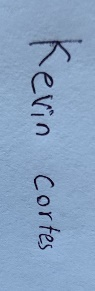 Kevin Cortes